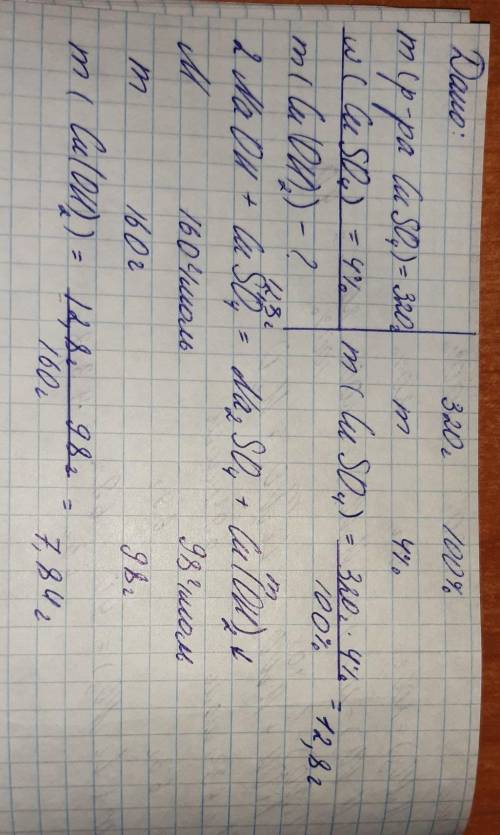 Дано:
m(р-ра CuSO₄)=320г
w(CuSO₄) = 4%
m(Cu(OH₂) - ?
320г 100%
m 4%
m(CuSO₄) = 320г · 4% / 100% = 12,8г
12,8г m
2NaOH + CuSO₄ = Na₂SO₄ + Cu(OH)₂↓
M 160г/моль 98г/моль
m 160г 98г
m(Cu(OH₂) = 12,8г · 98г / 160г = 7,84г